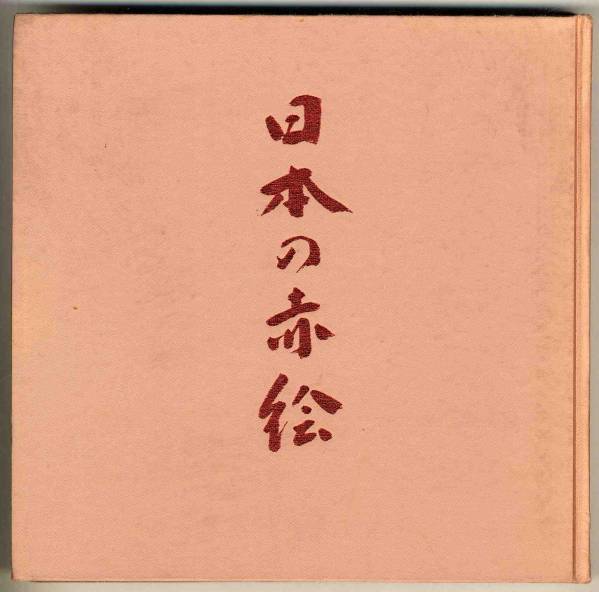 日本の赤絵